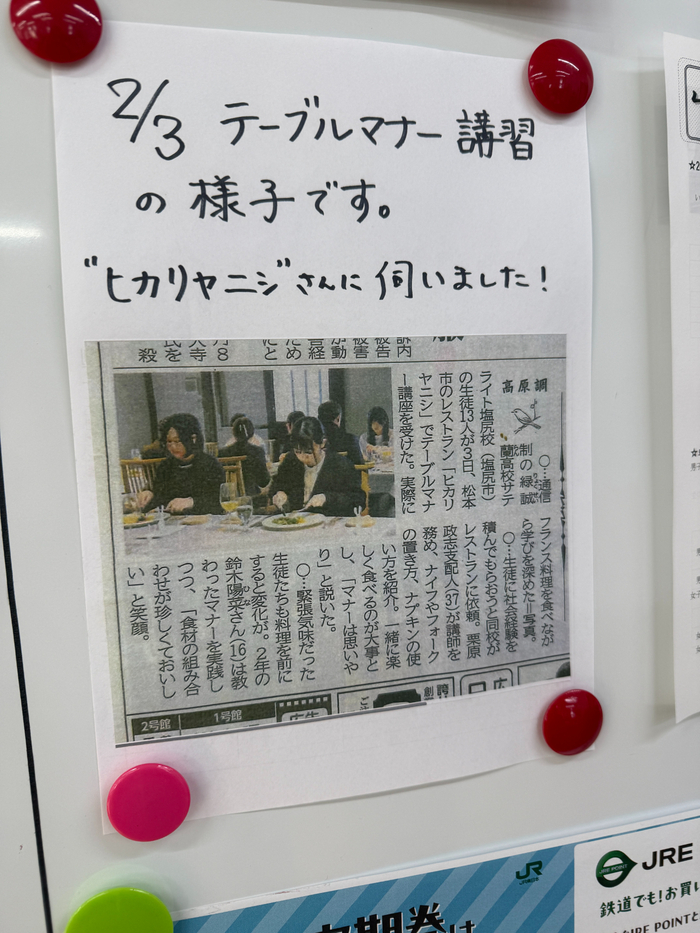 2/3 テーブルマナー講習
の様子です。
"ヒカリヤニシ"さんに伺いました!
高原調
○…通信
制の緑誠
蘭高校サテ
ライト塩尻校(塩尻市)
の生徒13人が3日、松本
市のレストラン「ヒカリ
ヤニシ」でテーブルマナ
ー講座を受けた。実際に
フランス料理を食べなが
ら学びを深めた=写真。
○…生徒に社会経験を
積んでもらおうと同校が
レストランに依頼。栗原
政志支配人(37)が講師を
務め、ナイフやフォーク
の置き方、ナプキンの使
い方を紹介。一緒に楽
しく食べるのが大事と
し、「マナーは思いや
り」と説いた。
○…緊張気味だった
生徒たちも料理を前に
すると変化が。2年の
鈴木陽菜さん(16)は教
ひな
わったマナーを実践し
つつ、「食材の組み合
わせが珍しくておいし
い」と笑顔。
2号館
1号館
広告
JR
JRE POINT
JRE
鉄道でも!お買い
定期券は